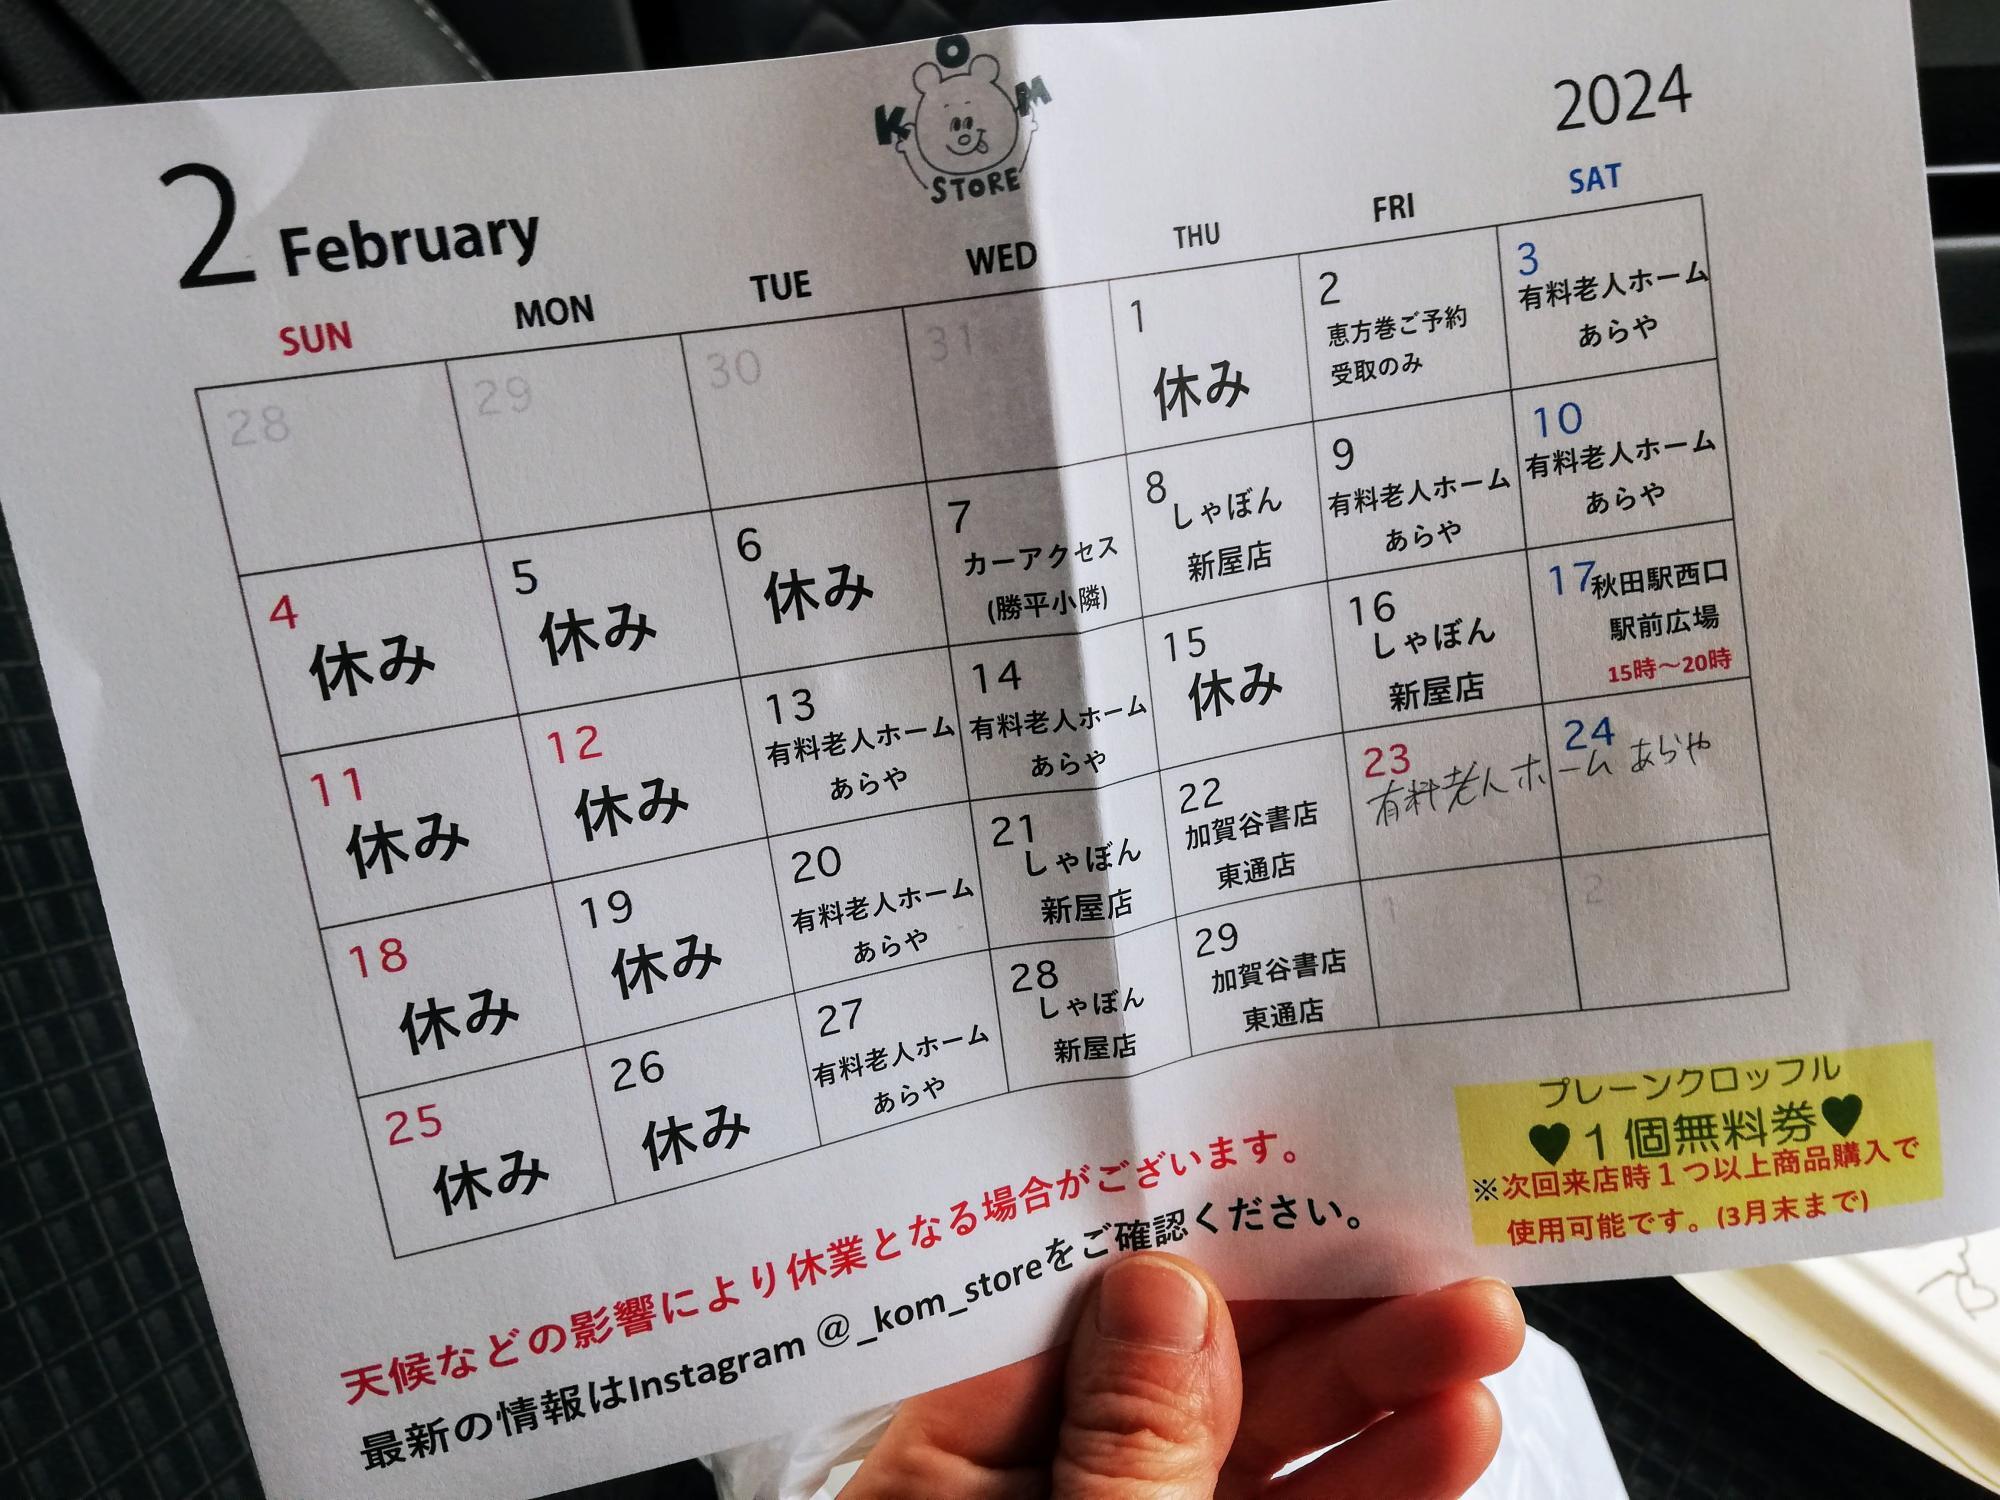 KOM
STORE
2 February
2024
SUN MON TUE WED THU FRI SAT
28 29 30 31
1
休み
2
恵方巻ご予約
受取のみ
3
有料老人ホーム
あらや
4
休み
5
休み
6
休み
7
カーアクセス
(勝平小隣)
8
しゃぼん
新屋店
9
有料老人ホーム
あらや
10
有料老人ホーム
あらや
11
休み
12
休み
13
有料老人ホーム
あらや
14
有料老人ホーム
あらや
15
休み
16
しゃぼん
新屋店
17
秋田駅西口
駅前広場
15時～20時
18
休み
19
休み
20
有料老人ホーム
あらや
21
しゃぼん
新屋店
22
加賀谷書店
東通店
23 24
有料老人ホーム あらや
25
休み
26
休み
27
有料老人ホーム
あらや
28
しゃぼん
新屋店
29
加賀谷書店
東通店
1 2
天候などの影響により休業となる場合がございます。
最新の情報はInstagram @_kom_storeをご確認ください。
プレーンクロッフル
♥１個無料券♥
※次回来店時１つ以上商品購入で
使用可能です。(3月末まで)